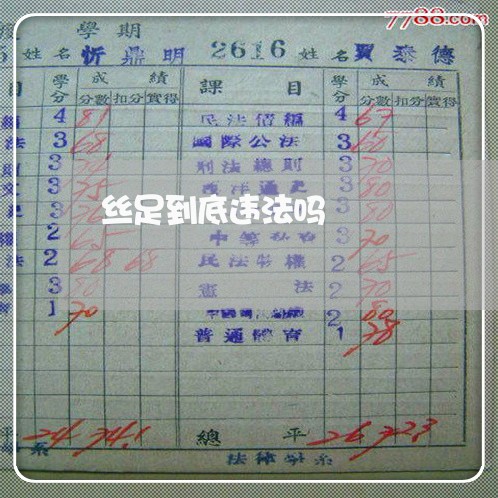 7788.com
學期
姓名 忻鼎明 2616 姓名 賈泰德
目 學分 成績 課目 學分 成績
分數 扣分 實得 分數 扣分 實得
4 81 民法債編 4 67
法 3 68 國際公法 3 60
3 刑法總則 3 70
3 75 西洋通史 3 80
丝足到底违法吗
3 80
2 65 3 70
法 2 68 68 民法物權 2 65
3 80 憲法 2 70
1 70 2 80
普通體育 1 78
平 24 74.1 總平 26 72.3
系 法律學系